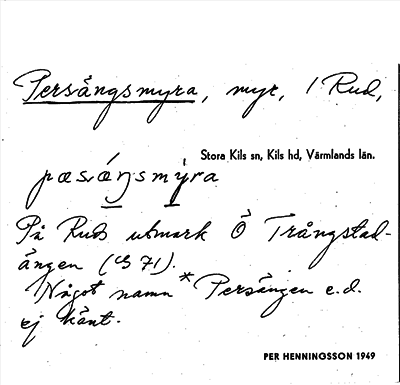 Persångsmyra, myr, / Rud,
Stora Kils sn, Kils hd, Värmlands län.
På Ruds utmark Ö Trångstad-
ängen (S 71).
Något namn *Persängen e.d.
ej känt.
PER HENNINGSSON 1949